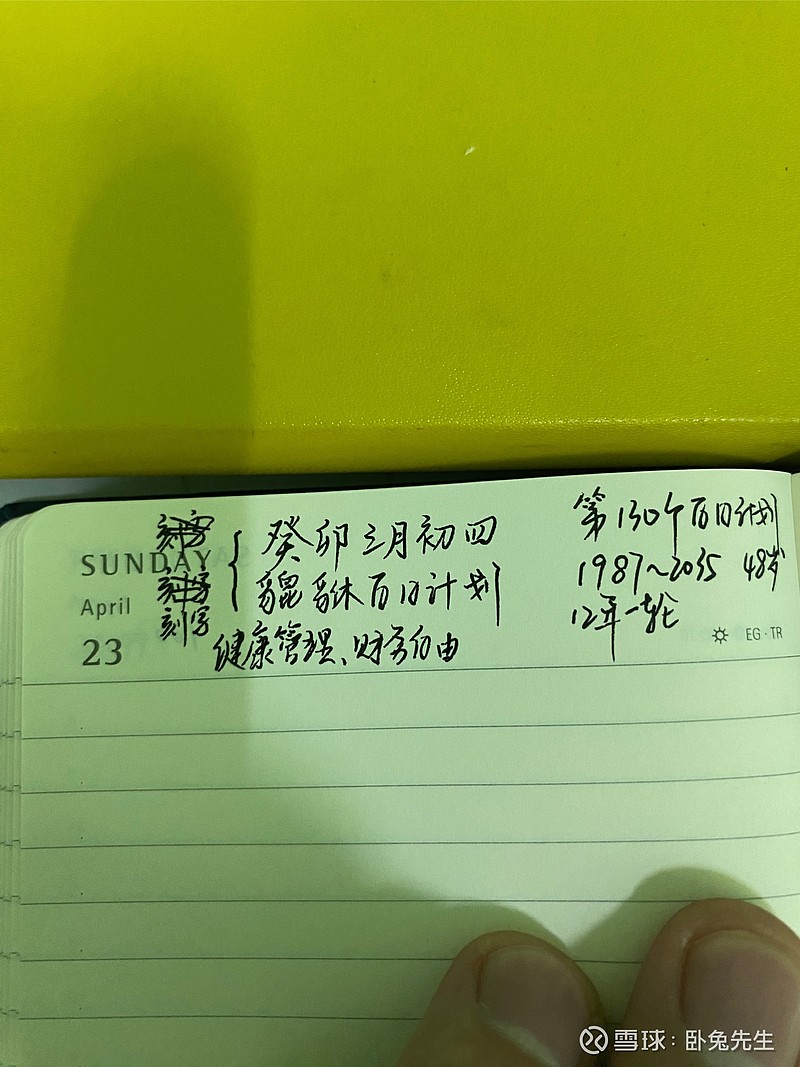 刻字
SUNDAY
刻字
April
刻字
23
癸卯三月初四
貔貅百日计划
健康管理、财务自由
第130个百日计划
1987~2035 48岁
12年一轮
EG·TR
雪球：卧兔先生